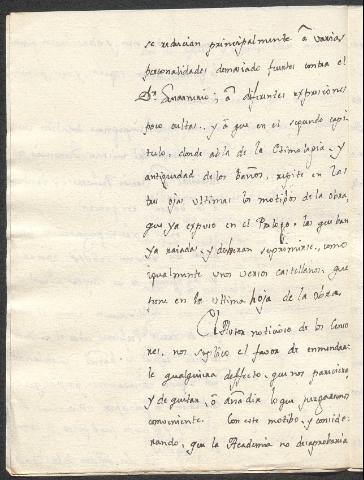 se reducian principalmente â varias
personalidades demasiado fuertes contra el
Dr. ; â diferentes expresiones
poco cultas, y â que en el segundo capi-
tulo, donde abla de la Etimologia, y
antiguedad de los Barros, repite en las
tres ojas ultimas los motibos de la obra,
que ya expuso en el Prologo, los que ban
ya raiados, y deberan suprimirse, como
igualmente unos versos castellanos, que
pone en la ultima hoja de la obra.
El Autor noticioso de los Censo
res, nos suplico el favor de enmendar-
le qualquiera deffecto, que nos pareciera
y de quitar, ô anadir lo que juzgaramos
conveniente. Con este motibo, y conside
rando, que la Academia no desaprobaria